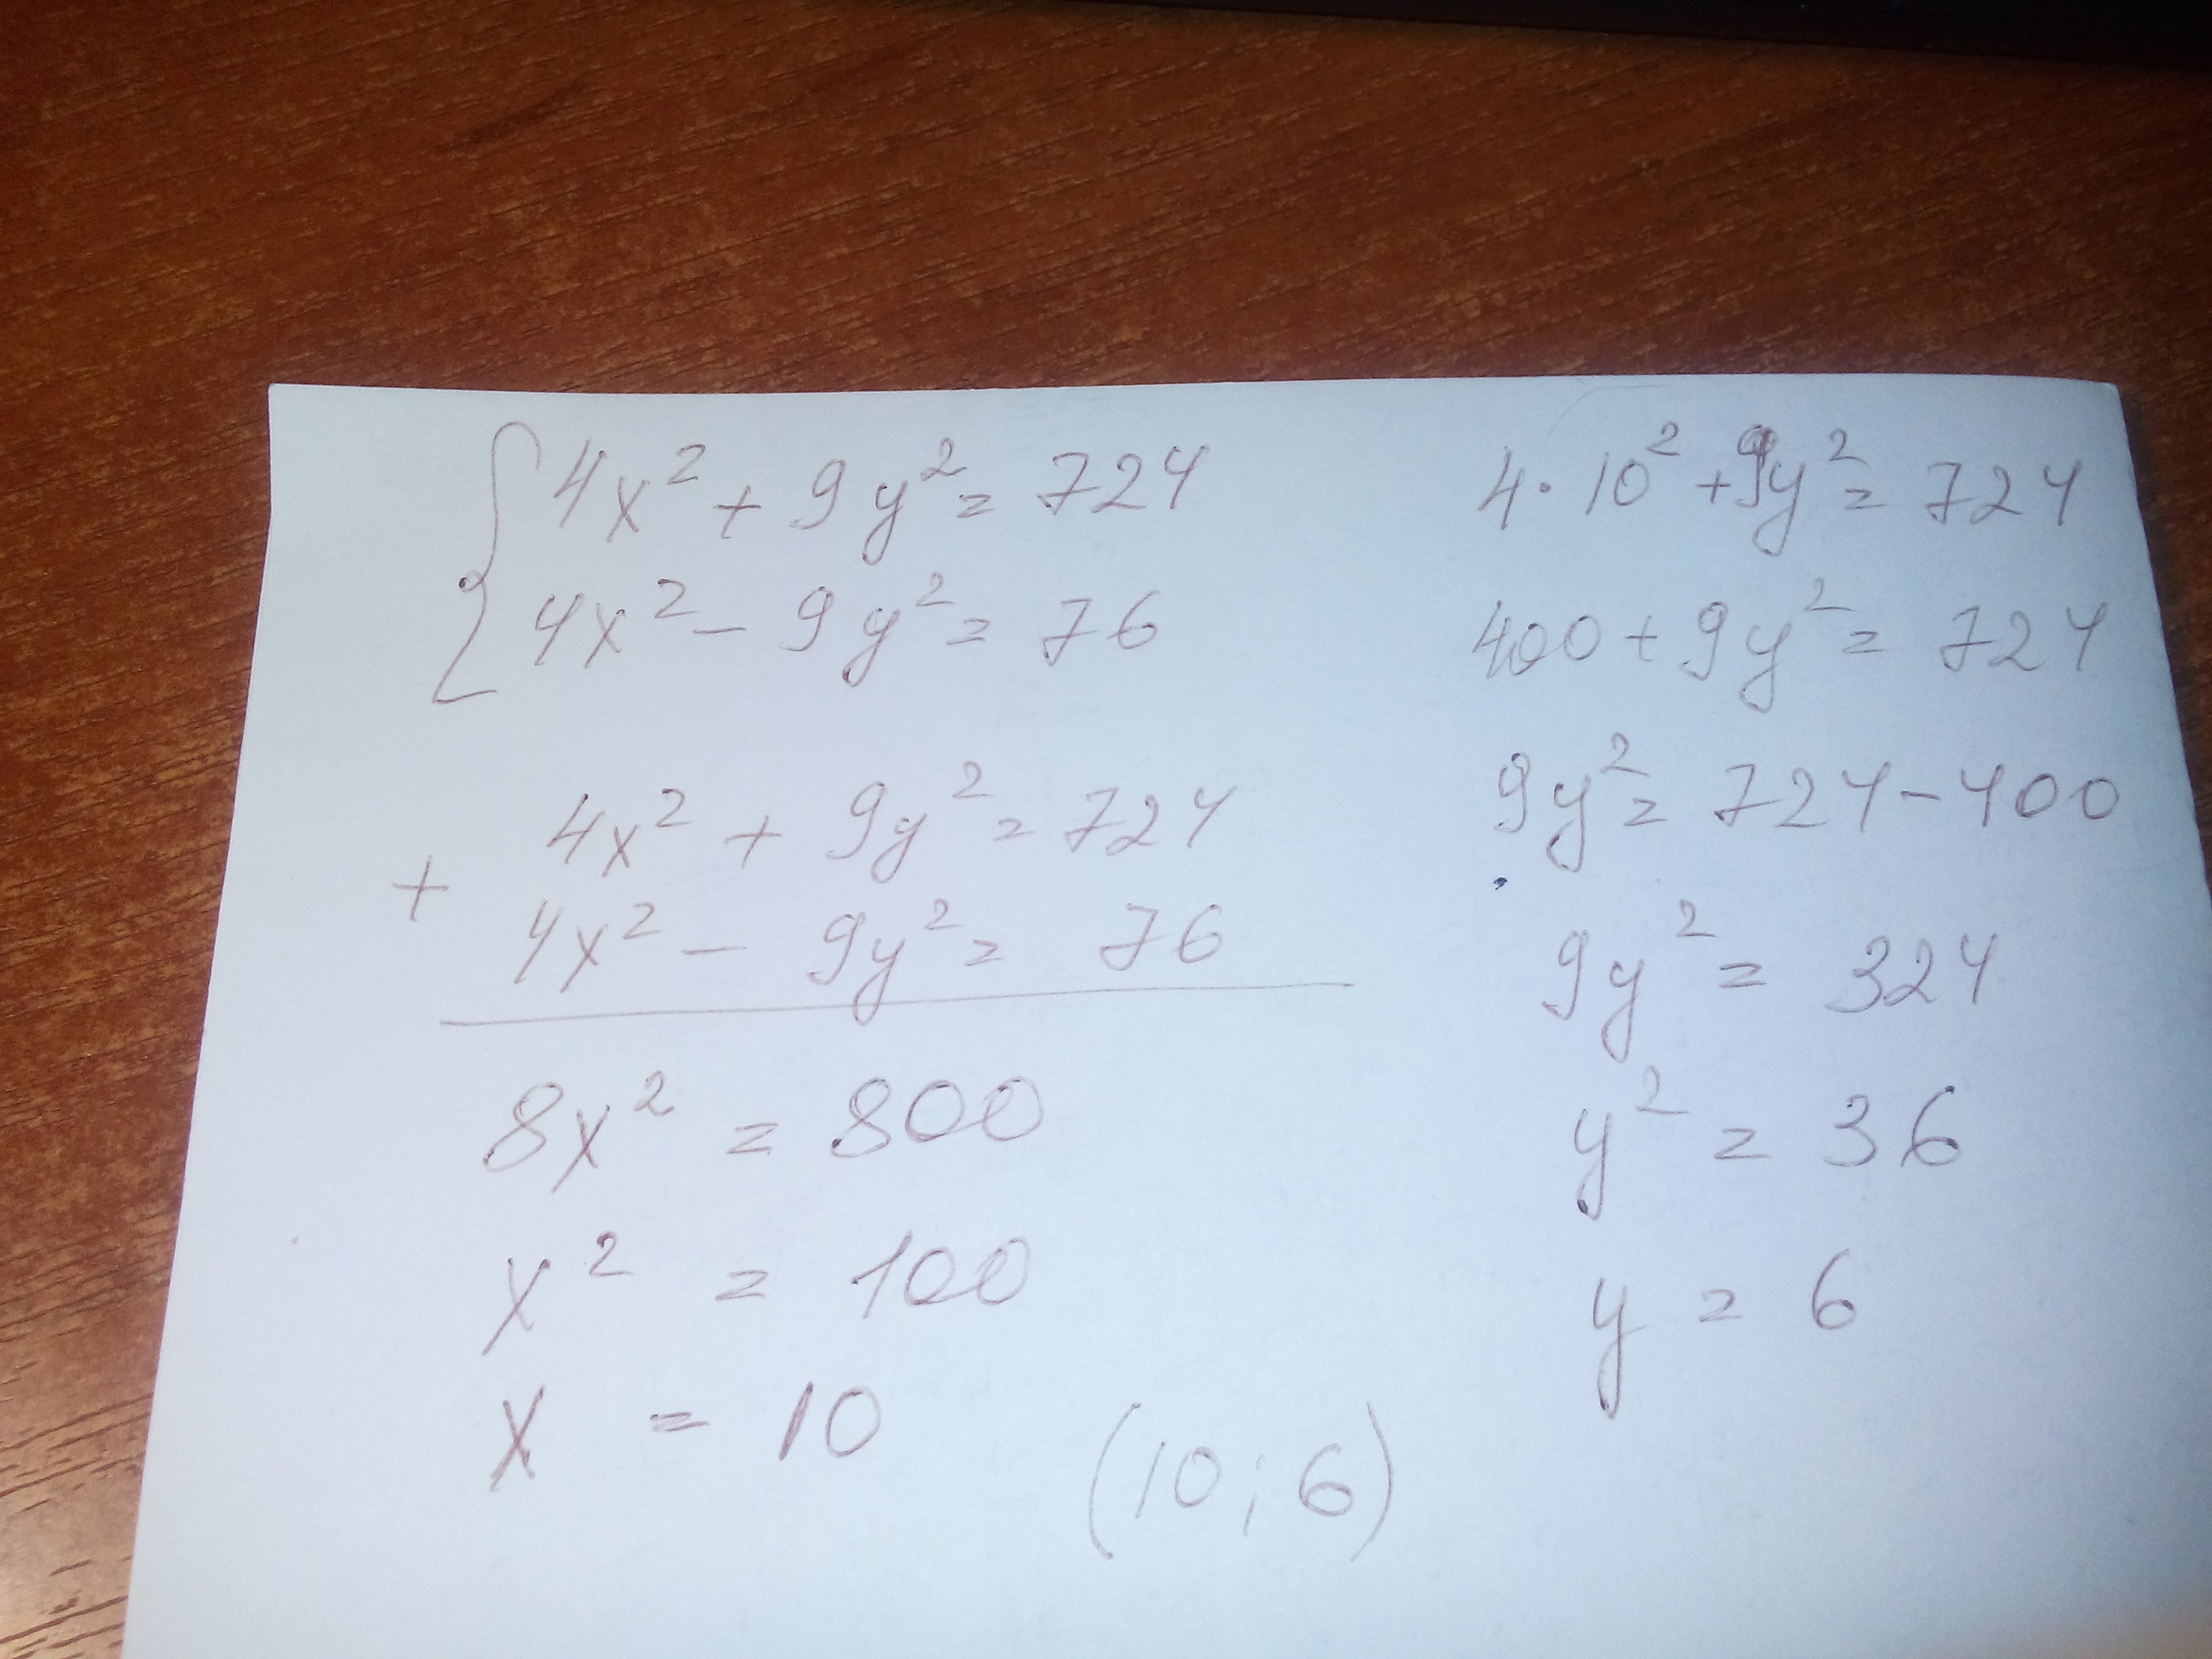 { 4x² + 9y² = 724
4x² - 9y² = 76
4x² + 9y² = 724
+
4x² - 9y² = 76
8x² = 800
x² = 100
x = 10
(10; 6)
4·10² + 9y² = 724
400 + 9y² = 724
9y² = 724 - 400
9y² = 324
y² = 36
y = 6